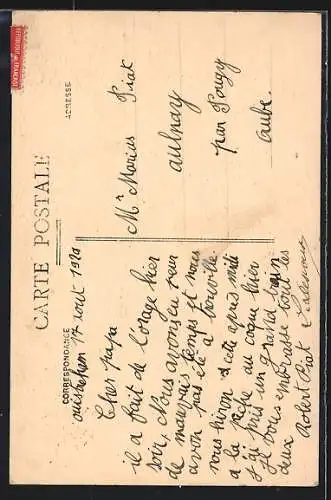 CARTE POSTALE
CORRESPONDANCE
ADRESSE
ouistreham 17 aout 1920
Cher papa
il a fait de l'orage hier
soir, Nous avons eu
de mauvais temps et nous
avon pas été a trouville.
nous hiron cete apres midi
a la peche au coque hier
j'ai pris un grand bain
je vous embrasse tout les
deux
Robert Piat
Mr Marius Piat
aulnay
par Pougy
Aube.